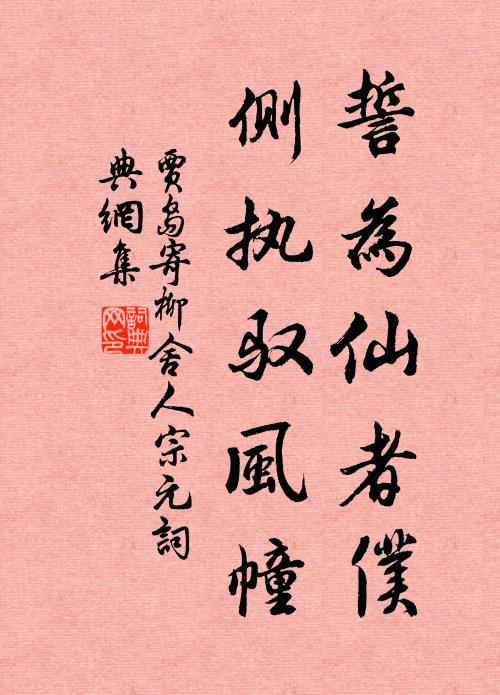 誓為仙者僕
側执驭風幢
賈島寄柳舍人宗元詞
典網集
詞典
网印